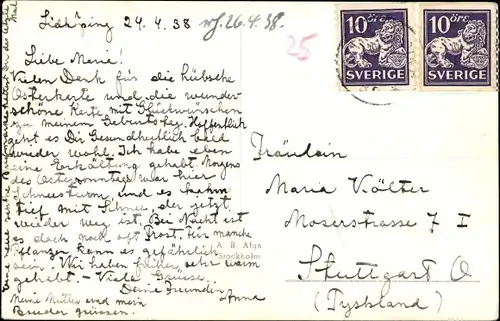 Lidköping 24.4.38
26.4.38.
25
10 ÖRE
SVERIGE
10 ÖRE
SVERIGE
Liebe Maria!
Vielen Dank für die hübsche
Osterkarte und die wunder-
schöne Karte mit Glückwünschen
zu meinem Geburtstag. Hoffentlich
geht es Dir Gesundheitlich bald
wieder wohl. Ich habe eben
eine Erkältung gehabt. Morgens
des Ostersonntags war hier
Schneesturm, und es kam
tief mit Schnee, der jetzt
wieder weg ist. Bei Nacht ist
es doch noch oft Frost. Für manche
Pflanzen kann es gefährlich
sein. Wir haben früher sehr warm
gehabt. - Viele Grüsse.
Deine Freundin
Anna
Meine Mutter und mein
Bruder grüssen.
A. B. Alga
Stockholm
Fräulein
Maria Völter
Moserstrasse 7 I
Stuttgart O
(Tyskland)